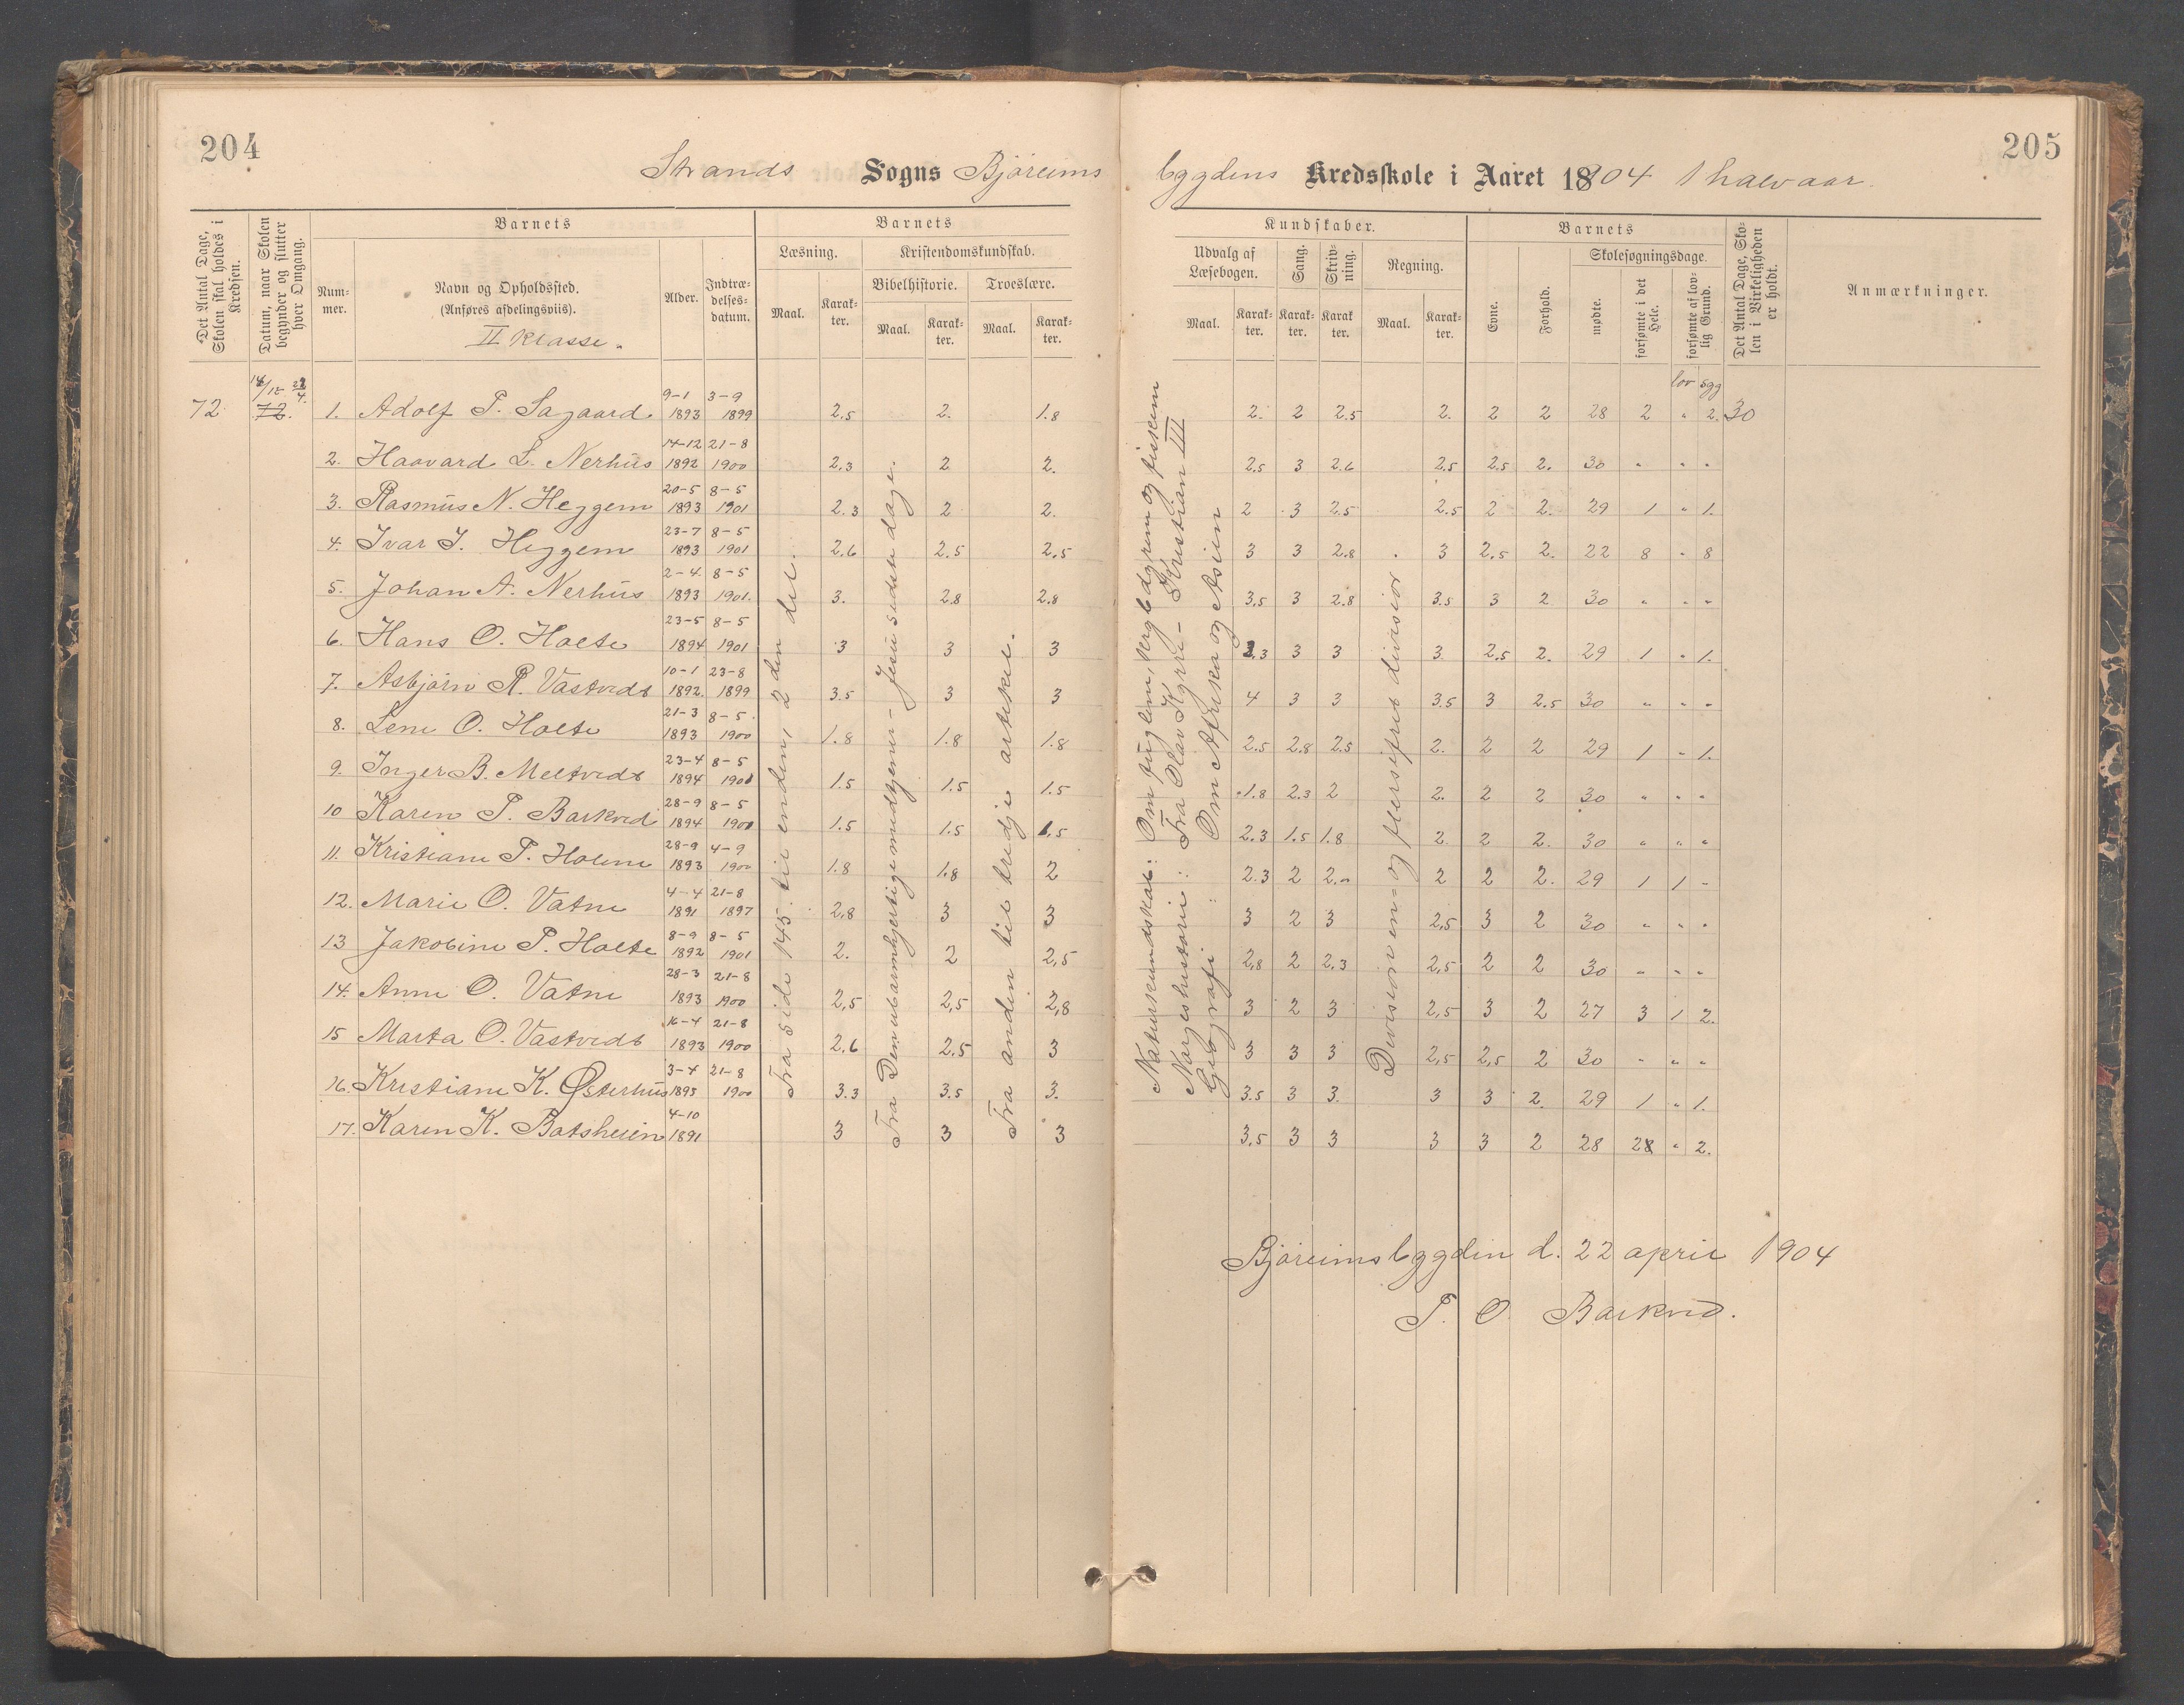 204
205
Strands Sogns Björeims bygdens Kredsskole i Aaret 1904 1 halvaar.
Det Antal Dage, Skolen skal holdes i Kredsen.
Datum, naar Skolen begynder og slutter hver Omgang.
Barnets
Nummer.
Navn og Opholdssted.
(Anføres afdelingsviis).
II Klasse.
Alder.
Indtrædelses-datum.
Barnets
Læsning.
Kristendomskundskab.
Bibelhistorie.
Troeslære.
Maal.
Karakter.
Maal.
Karakter.
Maal.
Karakter.
Kundskaber.
Udvalg af Læsebogen.
Sang.
Skrivning.
Regning.
Maal.
Karakter.
Karakter.
Karakter.
Maal.
Karakter.
Barnets
Evne.
Forhold.
Skolesøgningsdage.
mødte.
forsømte i det Hele.
forsømte af lovlig Grund.
Det Antal Dage, Skolen i Virkeligheden er holdt.
Anmærkninger.
lov sgg
72 14/12 22/4 72. 1. Adolf P. Sagaard. 9-1 1893 3-9 1899 2,5 2. 1.8 2. 2 2.5 2. 2 2 28 2 " 2. 30
2. Haavard L. Nerhus 14-12 1892 21-8 1900 2,3 2 2. 2,5 3 2.6 2,5 2,5 2. 30 " " "
3. Rasmus N. Heggem 20-5 1893 8-5 1901 2.3 2 2. 2 3 2.5 2.5 2 2. 29 1 " 1.
4. Ivar I. Heggem 23-7 1893 8-5 1901 2,6 2.5 2,5 3 3 2.8 3 2,5 2. 22 8 " 8
5. Johan A. Nerhus 2-4. 1893 8-5 1901. 3. 2.8 2.8 3,5 3 2.8 3.5 3 2 30 " " "
6. Hans O. Holte 23-5 1894 8-5 1901 3 3 3 3.3 3 3 3. 2,5 2. 29 1 " 1.
7. Asbjörn R. Vastvedt 10-1 1892. 23-8 1899 3.5 3 3 4 3 3 3.5 3 2.5 30 " " "
8. Lene O. Holte 21-3 1893 8-5 1900 1.8 1.8 1.8 2.5 2.8 2.5 2. 2 2 29 1 " 1.
9. Inger B. Meltvedt 23-4 1894 8-5 1901 1.5 1.5 1.5 1.8 2.3 2 2. 2 2 30 " " "
10 Karen P. Barkved 28-9 1894 8-5 1901 1.5 1.5 1,5 2.3 1.5 1.8 2. 2 2. 30 " " "
11. Kristiane P. Holme 28-9 1893 4-9 1900 1.8 1.8 2 2.3 2 2. 2 2 2. 29 1 1 "
12. Marie O. Vatne 4-4 1891 21-8 1897 2,8 3 3 3 2 3 2,5 3 2 30 " " "
13 Jakobine P. Holte 8-9 1892 8-5 1901 2. 2 2,5 2,8 2 2,3 2,5 2 2 30 " " "
14. Anne O. Vatne 28-3 1893 21-8 1900 2,5 2,5 2,8 3 2 3 2,5 3 2 27 3 1 2.
15 Marta O. Vastvedt 16-4 1893 21-8 1900 2.6 2.5 3 3 3 3 2,5 2,5 2 30 " " "
16. Kristiane K. Østerhus 3-4 1893 21-8 1900 3.3 3.5 3. 3.5 3 3. 3 3 2. 29 1 " 1.
17. Karen K. Botsheim 4-10 1891 3 3 3 3,5 3 3 3 3 2 28 2 " 2.
Fra side 145. til enden, 2 den del.
Fra Den ubarmhjertige medtjener - Jesu sidste dage.
Fra anden til tredje artikel.
Naturkundskab: Om fuglene, krybdyrene og fiskene
Norgeshistorie: Fra Olav Kyrre - Kristian III
Geografi: Om Afrika og Asien
Division en- og flersifret divisior.
Björeimsbygden d. 22 april 1904
P. O. Barkved.